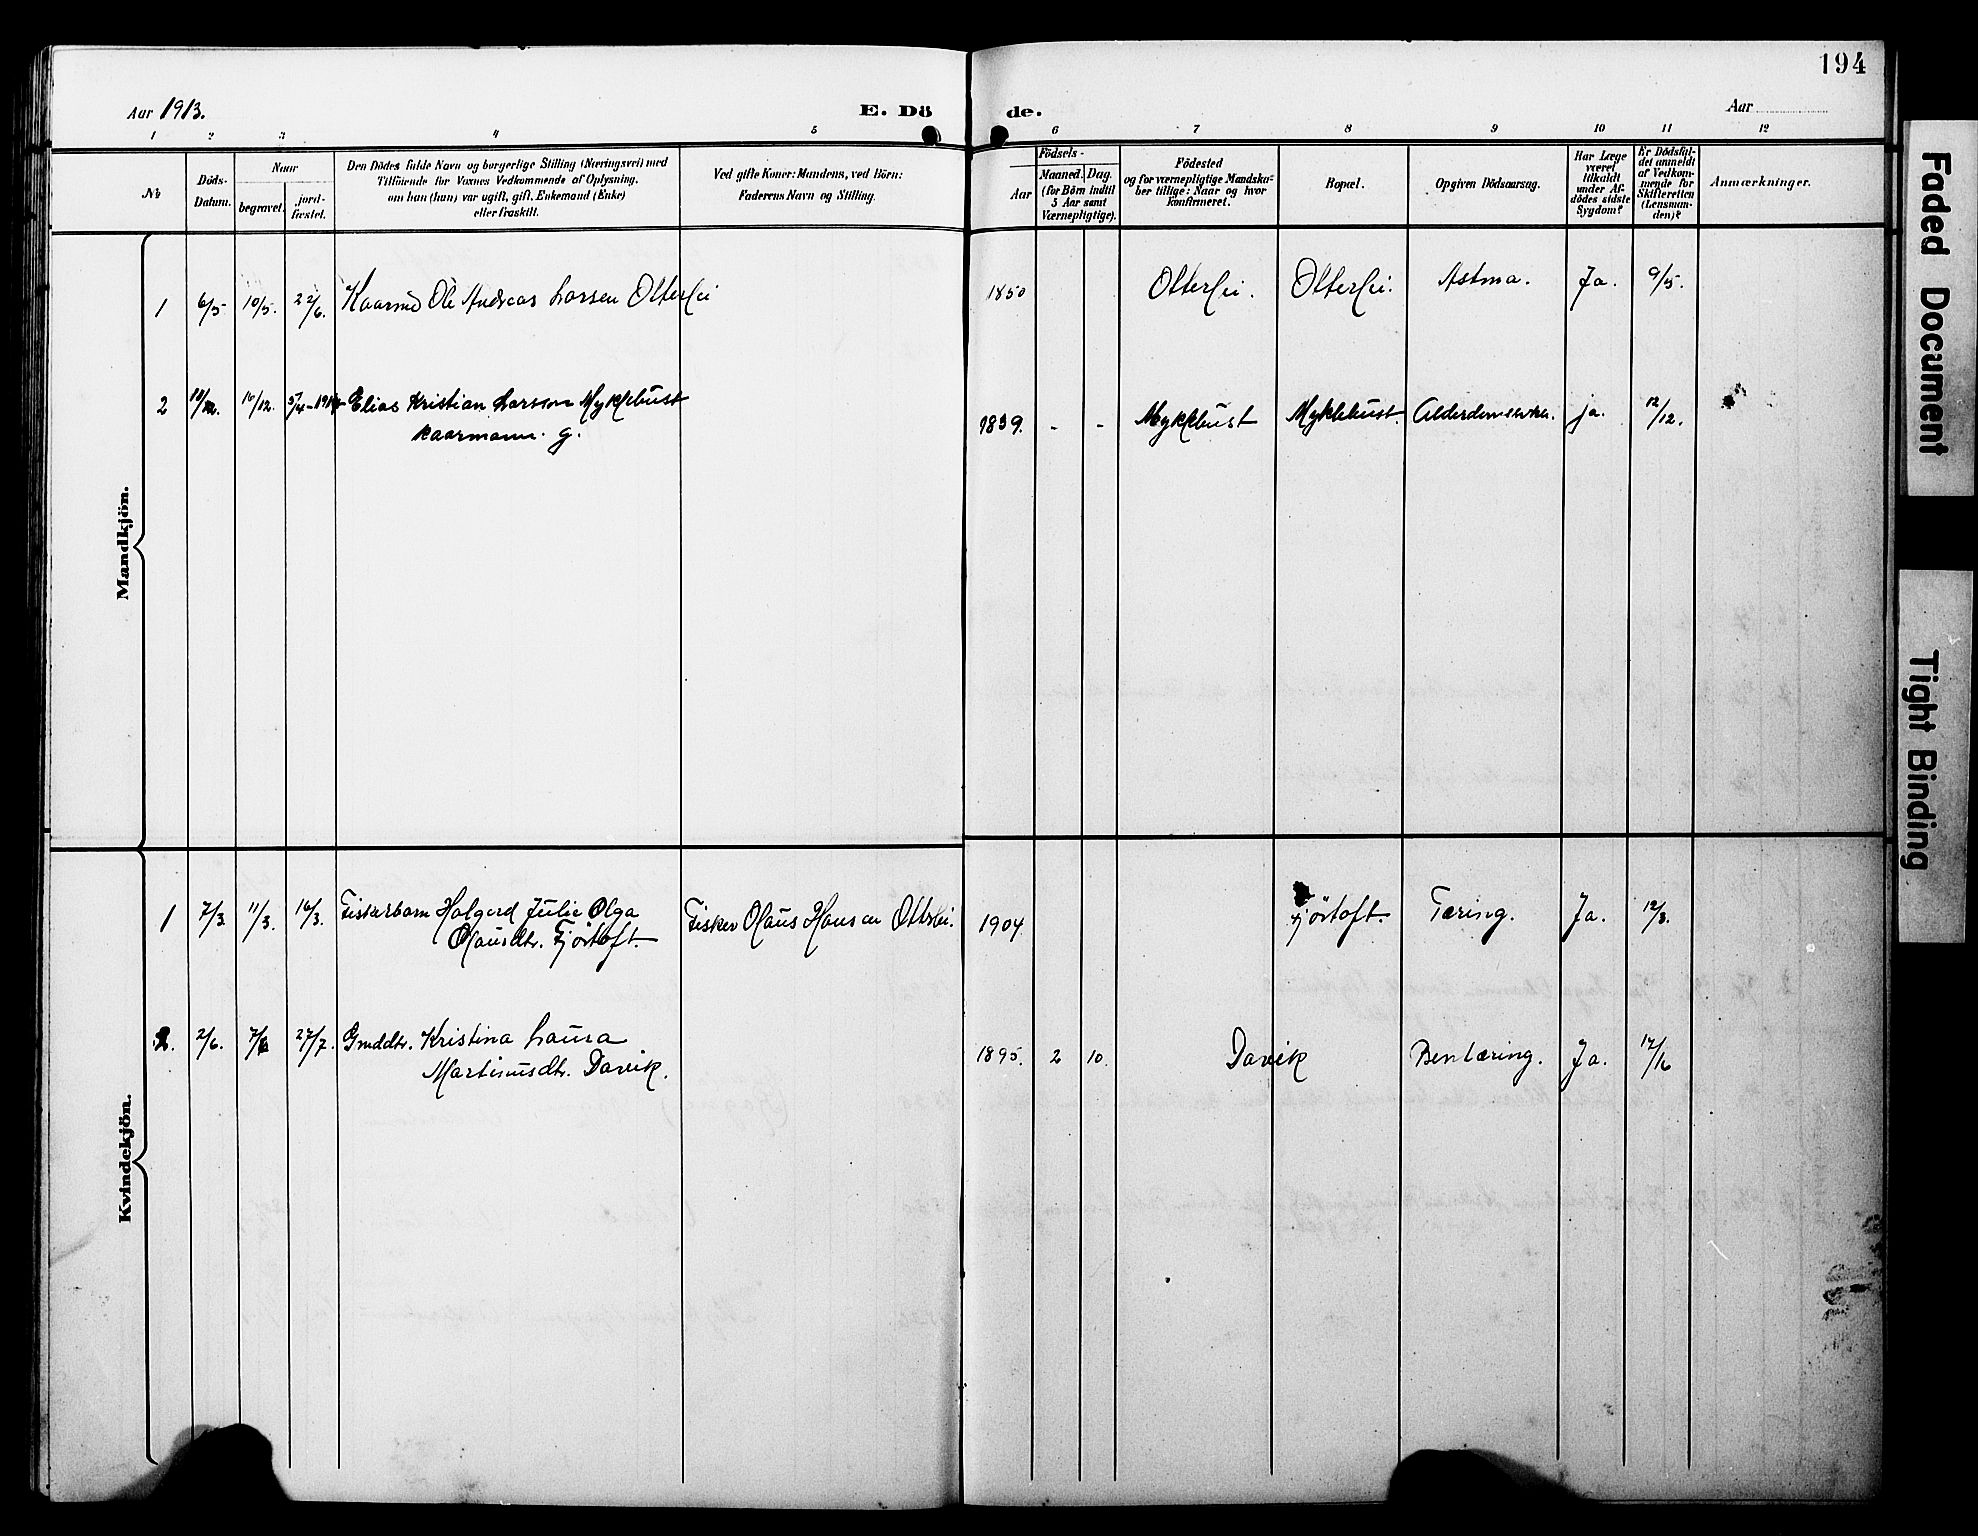 194
Aar 1913.
E. Dö
de.
Aar
1 2 3 4 5 6 7 8 9 10 11 12
№
Döds-
Datum.
Naar
begravet.
jord-
fæstet.
Den Dödes fulde Navn og borgerlige Stilling (Næringsvei) med
Tilföiende for Voxnes Vedkommende af Oplysning,
om han (hun) var ugift, gift, Enkemand (Enke)
eller fraskilt.
Ved gifte Koner: Mandens, ved Börn:
Faderens Navn og Stilling.
Födsels-
Aar
Maaned. Dag.
(for Börn indtil
5 Aar samt
Værnepligtige).
Födested
og for værnepligtige Mandska-
ber tillige: Naar og hvor
konfirmeret.
Bopæl.
Opgiven Dödsaarsag.
Har Læge
været
tilkaldt
under Af-
dödes sidste
Sygdom?
Er Dödsfal-
det anmeldt
af Vedkom-
mende for
Skifteretten
(Lensman-
den)?
Anmærkninger.
Mandkjön.
1 6/5 10/5. 22/6. Kaarmd Ole Andreas Larsen Otterlei 1850 Otterlei. Otterlei. Astma. Ja. 9/5.
2 16/12. 5/4-1914 Elias Kristian Larsson Myklebust 1839. - - Myklebust Myklebust. ja. 12/12.
kaarmann. g.
Kvindekjön.
1 7/3 11/3. 16/3. Fiskerbarn Halgerd Julie Olga Fisker Olaus Hansen Otterlei. 1904 Fjörtoft. Tæring. Ja. 12/3.
Olausdtr. Fjörtoft.
2. 2/6. 7/6 27/7. Gmddtr. Kristina Laura 1895. 2 10. Davik Bentæring. Ja.
Martinusdtr. Davik.
Faded Document
Tight Binding